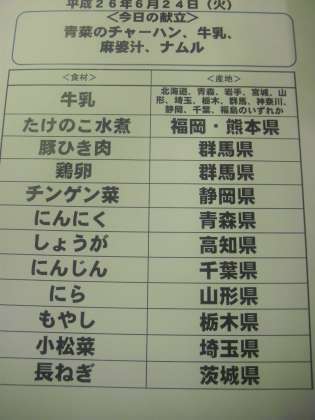 平成26年6月24日(火)
<今日の献立>
青菜のチャーハン、牛乳、
麻婆汁、ナムル
<食材> <産地>
牛乳 北海道、青森、岩手、宮城、山
形、埼玉、栃木、群馬、神奈川、
静岡、千葉、福島のいずれか
たけのこ水煮 福岡・熊本県
豚ひき肉 群馬県
鶏卵 群馬県
チンゲン菜 静岡県
にんにく 青森県
しょうが 高知県
にんじん 千葉県
にら 山形県
もやし 栃木県
小松菜 埼玉県
長ねぎ 茨城県